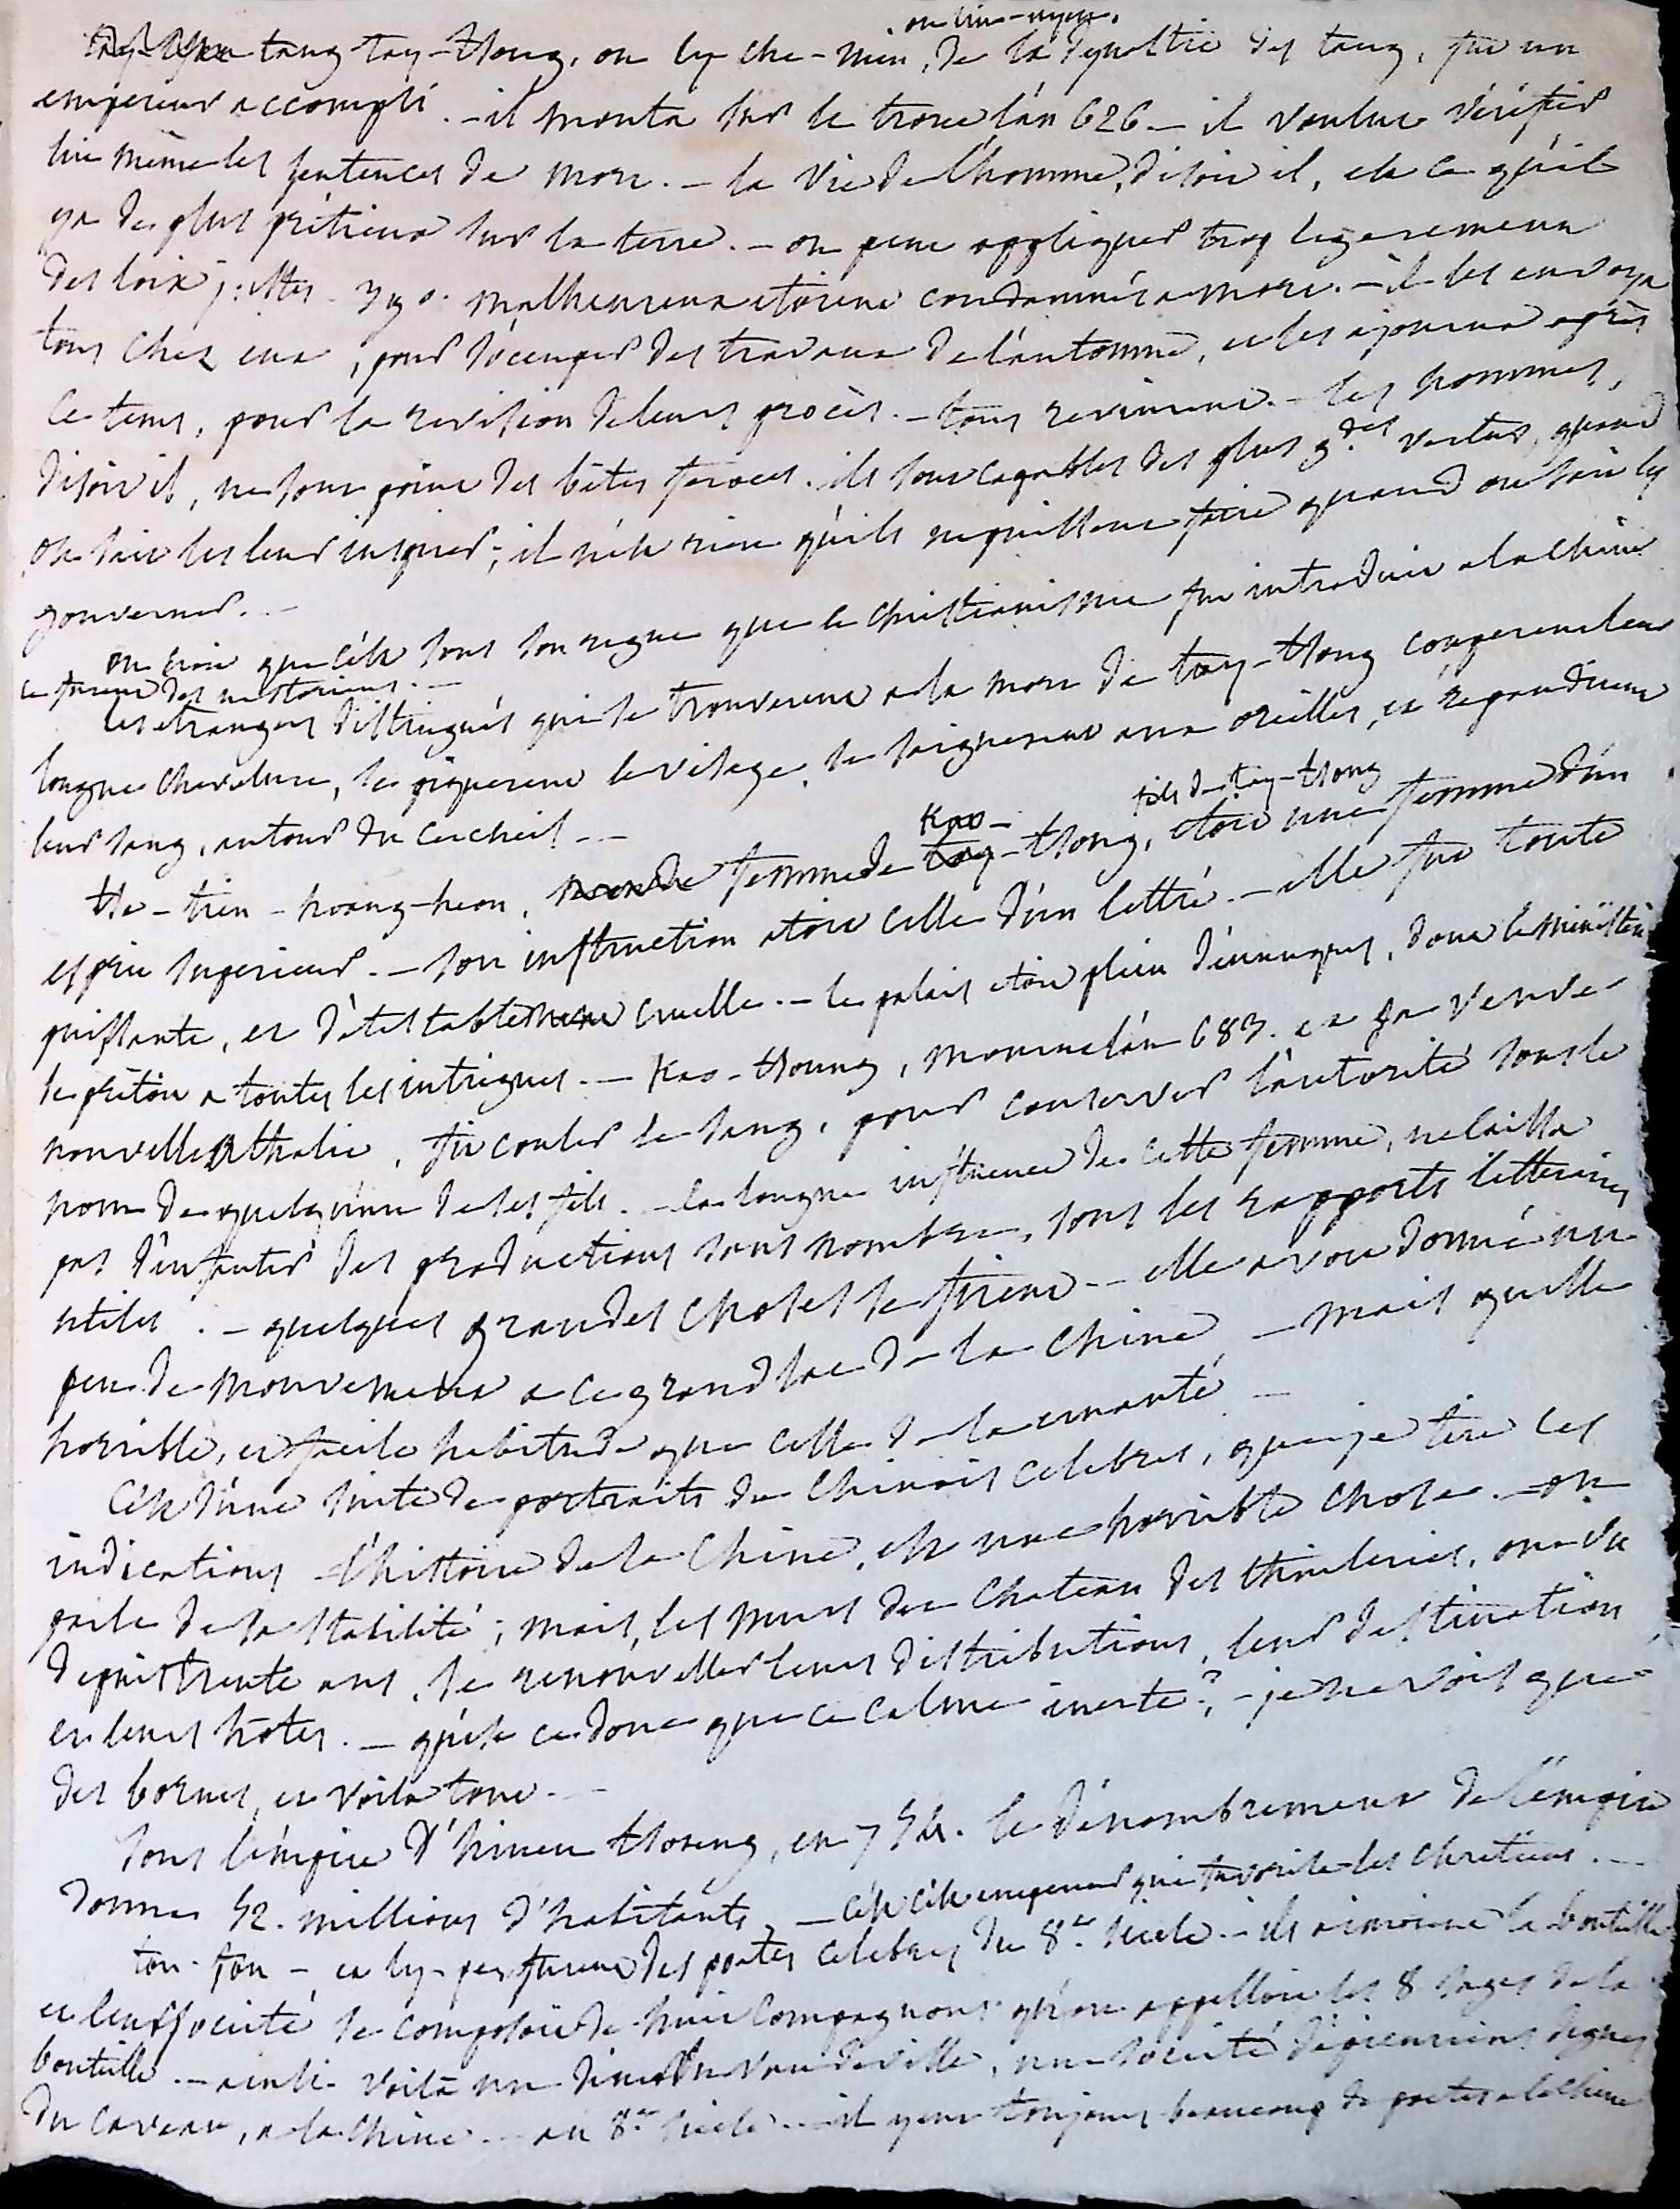 ou lin-
tang tay-tsong, ou ly che-min, de la dynastie des tang, fut un
empereur accompli. - il monta sur le trone l'an 626 - il voulut vérifier
lui même les sentences de mort. - la vie de l'homme, disoit il, est ce qu'il
ya de plus prétieux sur la terre. - on peut appliquer trop legerement
des loix justes. 390. malheureux etoient condamnés a mort. - il les envoya
tous chez eux, pour s'occuper des travaux de l'automne, et les ajourna après
ce tems, pour la revision de leurs procès. - tous revinrent. - les hommes,
disoit il, ne sont point des bêtes feroces. ils sont capables des plus g.des vertus, quand
on sait les leur inspirer; il n'est rien qu'ils ne puissent faire quand on sait les
gouverner. -
on croit que c'est sous son regne que le christianisme fut introduit a la chine
ce furent des nestoriens. -
les etrangers distingués qui se trouverent a la mort de tay-tsong couperent leur
longue chevelure, se piquerent le visage, se saignerent aux oreilles, et repandirent
leur sang, autour du cercheil - -
Kao- fils de tay-tsong
tse-tien-hoang-heou, femme de tay-tsong, etoit une femme d'un
esprit superieur. - son instruction etoit celle d'un lettré. - elle fut toute
puissante, et détestablement cruelle. - le palais etoit plein d'eunuques, dont le ministère
se prêtoit a toutes les intrigues. - Kao-tsoung, mourut l'an 683. et sa veuve
nouvelle Athalie, fit couler le sang, pour conserver l'autorité sous le
nom de quelqu'un de ses fils. - la longue influence de cette femme, ne laissa
pas d'enfanter des productions sans nombre, sous les rapports litteraires
utiles. - quelques grandes choses se firent - elle avoit donné un
peu de mouvement a ce grand lac de la chine - mais quelle
horrible, et facile habitude que celle de la cruauté -
C'est d'une suite de portraits de chinois celebres, que je tire ces
indications - l'histoire de la chine, est une horrible chose. - on
parle de sa stabilité; mais, les murs du chateau des thuileries, ont vu
depuis trente ans, se renouveller leurs distributions, leur destination
et leurs hôtes. - qu'est ce donc que ce calme inerte? - je ne vois que
des bornes, et voila tout. -
Sous l'empire d'hiuen tsoung, en 754. le dénombrement de l'empire
donne 52. millions d'habitants, - c'est cet empereur qui favorisa les chretiens. -
tou-fou - et ly-pe, furent des poetes celebres du 8.e siecle. - ils aimoient la bouteille
et leur société se composoit de huit compagnons qu'on appelloit les 8 sages de la
bouteille. - ainsi voila un diner du vaudeville, une société d'épicuriens dignes
du caveau, a la chine. - au 8.e siecle - il y eut toujours beaucoup de poetes a la chine